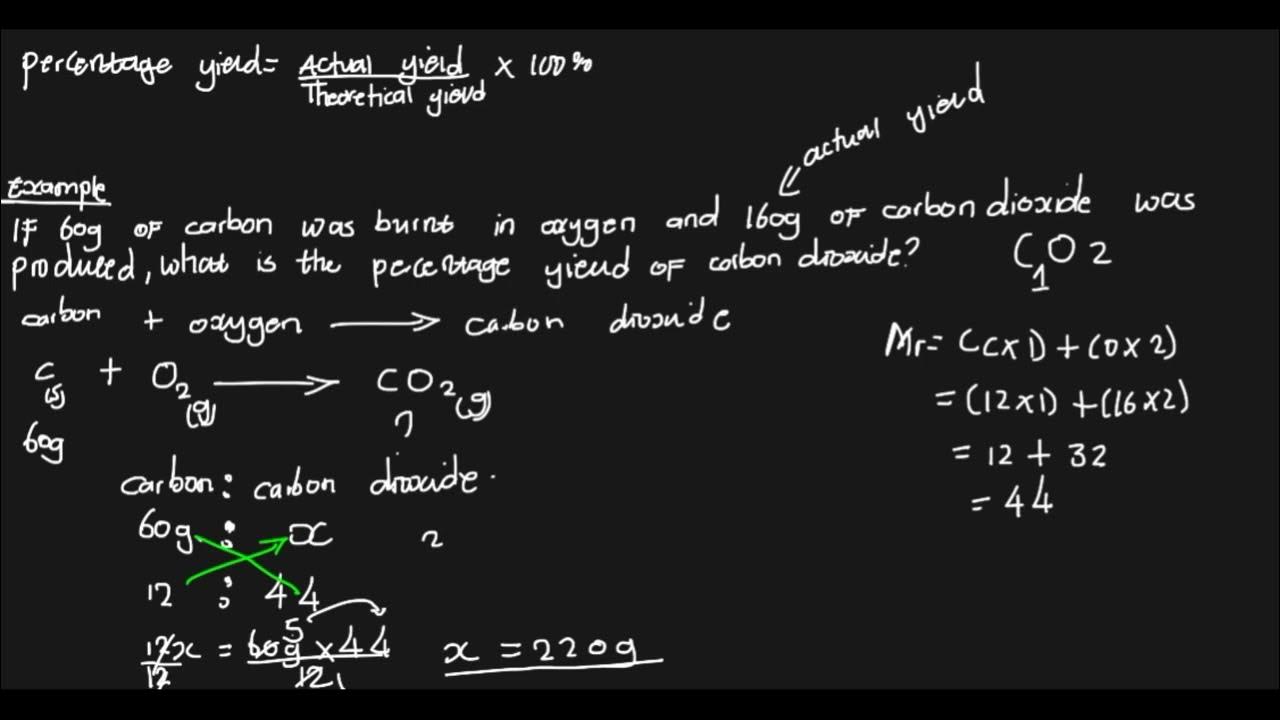 percentage yield = Actual yield / Theoretical yield × 100%
actual yield
Example
If 60g of carbon was burnt in oxygen and 160g of carbon dioxide was
produced, what is the percentage yield of carbon dioxide?
CO2
1
carbon + oxygen → carbon dioxide
C(s) + O2(g) → CO2(g)
60g ?
Mr = (C×1) + (O×2)
= (12×1) + (16×2)
= 12 + 32
= 44
carbon : carbon dioxide.
60g : x 2
12 : 44
5
12x = 60g × 44 x = 220g
12 12 1